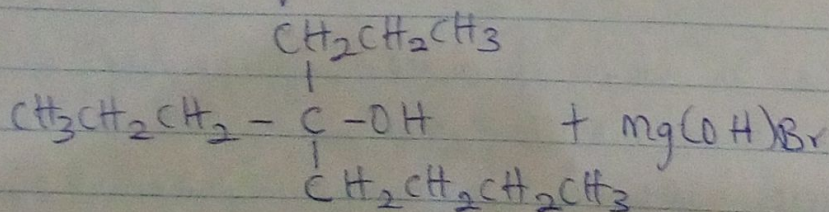 CH2CH2CH3
|
CH3CH2CH2 - C - OH + Mg(OH)Br
|
CH2CH2CH2CH3